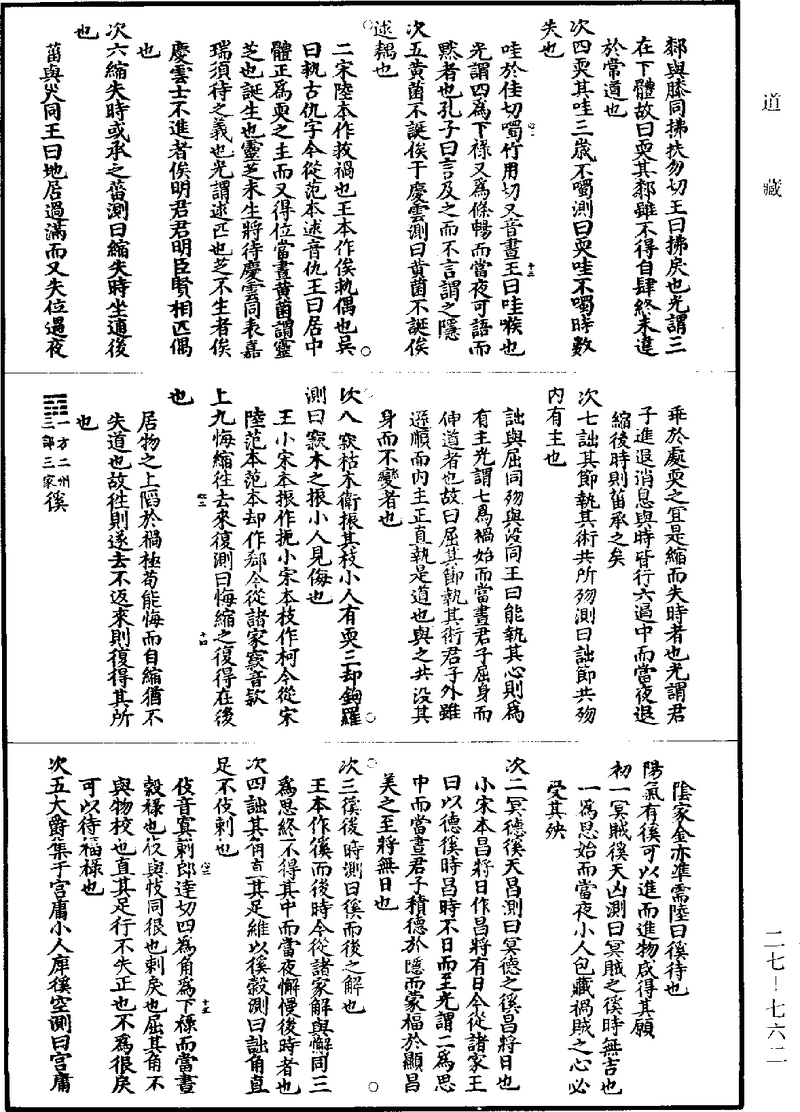 道藏
郄與膝同拂扶勿切王曰拂戾也光謂三
在下體故曰耎其郄雖不得自肆終未違
於常道也
次四耎其哇三歲不噣測曰耎哇不噣時數
失也
哇於佳切噣竹用切又音晝王曰哇喉也
光謂四為下祿又為條暢而當夜可語而
默者也孔子曰言及之而不言謂之隱
次五黃菌不誕俟于慶雲測曰黃菌不誕俟
逑耦也
二宋陸本作救禍也王本作俟執偶也吳
曰執古仇字今從范本逑音仇王曰居中
體正為耎之主而又得位當晝黃菌謂靈
芝也誕生也靈芝未生將待慶雲同表嘉
瑞須待之義也光謂逑匹也芝不生者俟
慶雲士不進者俟明君君明臣賢相匹偶
也
次六縮失時或承之菑測曰縮失時坐逋後
也
菑與災同王曰地居過滿而又失位遇夜
乖於處耎之宜是縮而失時者也光謂君
子進退消息與時皆行六過中而當夜退
縮後時則菑承之矣
次七詘其節執其術共所歾測曰詘節共歾
內有主也
詘與屈同歾與沒同王曰能執其心則為
有主光謂七為禍始而當晝君子屈身而
伸道者也故曰屈其節執其術君子外雖
遜順而內主正直執是道也與之共沒其
身而不變者也
次八窾枯木衛振其枝小人有耎三卻鉤羅
測曰窾木之振小人見侮也
王小宋本振作扼小宋本枝作柯今從宋
陸范本范本却作郄今從諸家窾音款
上九悔縮往去來復測曰悔縮之復得在後
也
居物之上陷於禍極苟能悔而自縮猶不
失道也故往則遂去不返來則復得其所
也
一方二州三部三家徯
陰家金亦準需陸曰徯待也
陽氣有徯可以進而進物咸得其願
初一冥賊徯天凶測曰冥賊之徯時無吉也
一為思始而當夜小人包藏禍賊之心必
受其殃
次二冥德徯天昌測曰冥德之徯昌將日也
小宋本昌將日作昌將有日今從諸家王
曰以德徯時昌時不日而至光謂二為思
中而當晝君子積德於隱而蒙福於顯昌
美之至將無日也
次三徯後時測曰徯而後之解也
王本作徯而後時今從諸家解與懈同三
為思終不得其中而當夜懈慢後時者也
次四詘其角直其足維以徯穀測曰詘角直
足不伎刺也
伎音寘刺郎達切四為角為下祿而當晝
穀祿也伎與忮同很也刺戾也屈其角不
與物校也直其足行不失正也不為很戾
可以待福祿也
次五大爵集于宮庸小人庳徯空測曰宮庸
二七—七六二